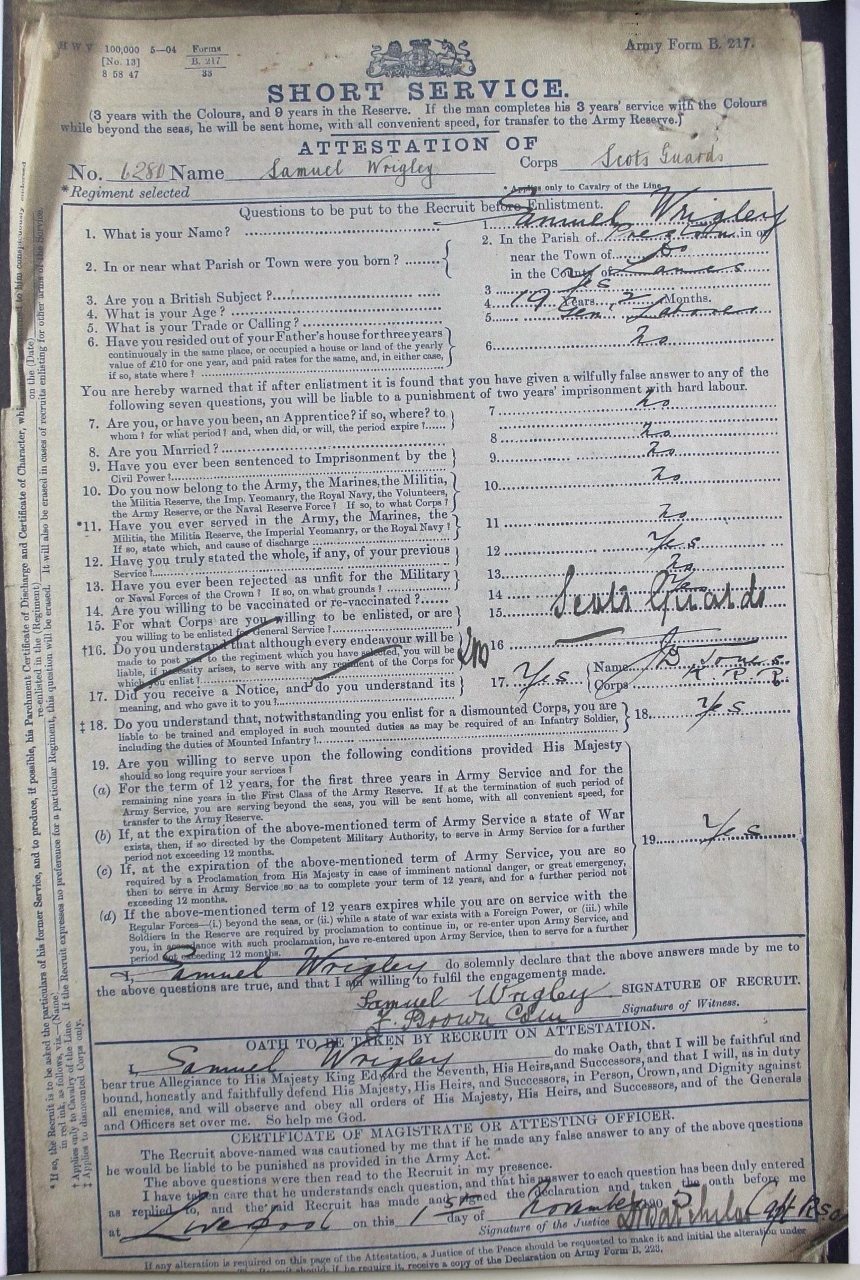 H W V 100,000 5—04 Forms
[No. 13] B. 217
8 58 47 33
Army Form B. 217.
SHORT SERVICE.
(3 years with the Colours, and 9 years in the Reserve. If the man completes his 3 years' service with the Colours
while beyond the seas, he will be sent home, with all convenient speed, for transfer to the Army Reserve.)
ATTESTATION OF
No. 6280 Name Samuel Wrigley Corps Scots Guards
*Regiment selected * Applies only to Cavalry of the Line.
Questions to be put to the Recruit before Enlistment.
1. What is your Name? 1. Samuel Wrigley
2. In or near what Parish or Town were you born? 2. In the Parish of Preston in or
near the Town of Do
in the County of Lancs
3. Are you a British Subject? 3 Yes
4. What is your Age? 4 19 Years. 2 Months.
5. What is your Trade or Calling? 5. Gen. Labourer
6. Have you resided out of your Father's house for three years
continuously in the same place, or occupied a house or land of the yearly
value of £10 for one year, and paid rates for the same, and, in either case,
if so, state where? 6. No
You are hereby warned that if after enlistment it is found that you have given a wilfully false answer to any of the
following seven questions, you will be liable to a punishment of two years' imprisonment with hard labour.
7. Are you, or have you been, an Apprentice? if so, where? to
whom? for what period? and, when did, or will, the period expire? 7 No
8. Are you Married? 8 No
9. Have you ever been sentenced to Imprisonment by the
Civil Power? 9. No
10. Do you now belong to the Army, the Marines, the Militia,
the Militia Reserve, the Imp. Yeomanry, the Royal Navy, the Volunteers,
the Army Reserve, or the Naval Reserve Force? If so, to what Corps? 10. No
*11. Have you ever served in the Army, the Marines, the
Militia, the Militia Reserve, the Imperial Yeomanry, or the Royal Navy?
If so, state which, and cause of discharge 11 No
12. Have you truly stated the whole, if any, of your previous
Service? 12 Yes
13. Have you ever been rejected as unfit for the Military
or Naval Forces of the Crown? If so, on what grounds? 13. No
14. Are you willing to be vaccinated or re-vaccinated? 14 Yes
15. For what Corps are you willing to be enlisted, or are
you willing to be enlisted for General Service? 15. Scots Guards
†16. Do you understand that although every endeavour will be
made to post you to the regiment which you have selected, you will be
liable, if necessity arises, to serve with any regiment of the Corps for
which you enlist? 16
17. Did you receive a Notice, and do you understand its
meaning, and who gave it to you? 17. Yes Name Jones
Corps
‡18. Do you understand that, notwithstanding you enlist for a dismounted Corps, you are
liable to be trained and employed in such mounted duties as may be required of an Infantry Soldier,
including the duties of Mounted Infantry? 18. Yes
19. Are you willing to serve upon the following conditions provided His Majesty
should so long require your services?
(a) For the term of 12 years, for the first three years in Army Service and for the
remaining nine years in the First Class of the Army Reserve. If at the termination of such period of
Army Service, you are serving beyond the seas, you will be sent home, with all convenient speed, for
transfer to the Army Reserve.
(b) If, at the expiration of the above-mentioned term of Army Service a state of War
exists, then, if so directed by the Competent Military Authority, to serve in Army Service for a further
period not exceeding 12 months.
19. Yes
(c) If, at the expiration of the above-mentioned term of Army Service, you are so
required by a Proclamation from His Majesty in case of imminent national danger, or great emergency,
then to serve in Army Service so as to complete your term of 12 years, and for a further period not
exceeding 12 months.
(d) If the above-mentioned term of 12 years expires while you are on service with the
Regular Forces—(i.) beyond the seas, or (ii.) while a state of war exists with a Foreign Power, or (iii.) while
Soldiers in the Reserve are required by proclamation to continue in, or re-enter upon Army Service, and
you, in accordance with such proclamation, have re-entered upon Army Service, then to serve for a further
period not exceeding 12 months.
I, Samuel Wrigley do solemnly declare that the above answers made by me to
the above questions are true, and that I am willing to fulfil the engagements made.
Samuel Wrigley SIGNATURE OF RECRUIT.
F. Brown Signature of Witness.
OATH TO BE TAKEN BY RECRUIT ON ATTESTATION.
I, Samuel Wrigley do make Oath, that I will be faithful and
bear true Allegiance to His Majesty King Edward the Seventh, His Heirs, and Successors, and that I will, as in duty
bound, honestly and faithfully defend His Majesty, His Heirs, and Successors, in Person, Crown, and Dignity against
all enemies, and will observe and obey all orders of His Majesty, His Heirs, and Successors, and of the Generals
and Officers set over me. So help me God.
CERTIFICATE OF MAGISTRATE OR ATTESTING OFFICER.
The Recruit above-named was cautioned by me that if he made any false answer to any of the above questions
he would be liable to be punished as provided in the Army Act.
The above questions were then read to the Recruit in my presence.
I have taken care that he understands each question, and that his answer to each question has been duly entered
as replied to, and the said Recruit has made and signed the Declaration and taken the oath before me
at Liverpool on this 1st day of November 190 5
Signature of the Justice
If any alteration is required on this page of the Attestation, a Justice of the Peace should be requested to make it and initial the alteration under
* If so, the Recruit is to be asked the particulars of his former Service, and to produce, if possible, his Parchment Certificate of Discharge and Certificate of Character,
in red ink, as follows, viz.—(Name) re-enlisted in the (Regiment) on the (Date)
† Applies only to Cavalry of the Line. If the Recruit expresses no preference for a particular Regiment, this question will be erased. It will also be erased in cases of recruits enlisting for other arms of the Service.
‡ Applies to dismounted Corps only.